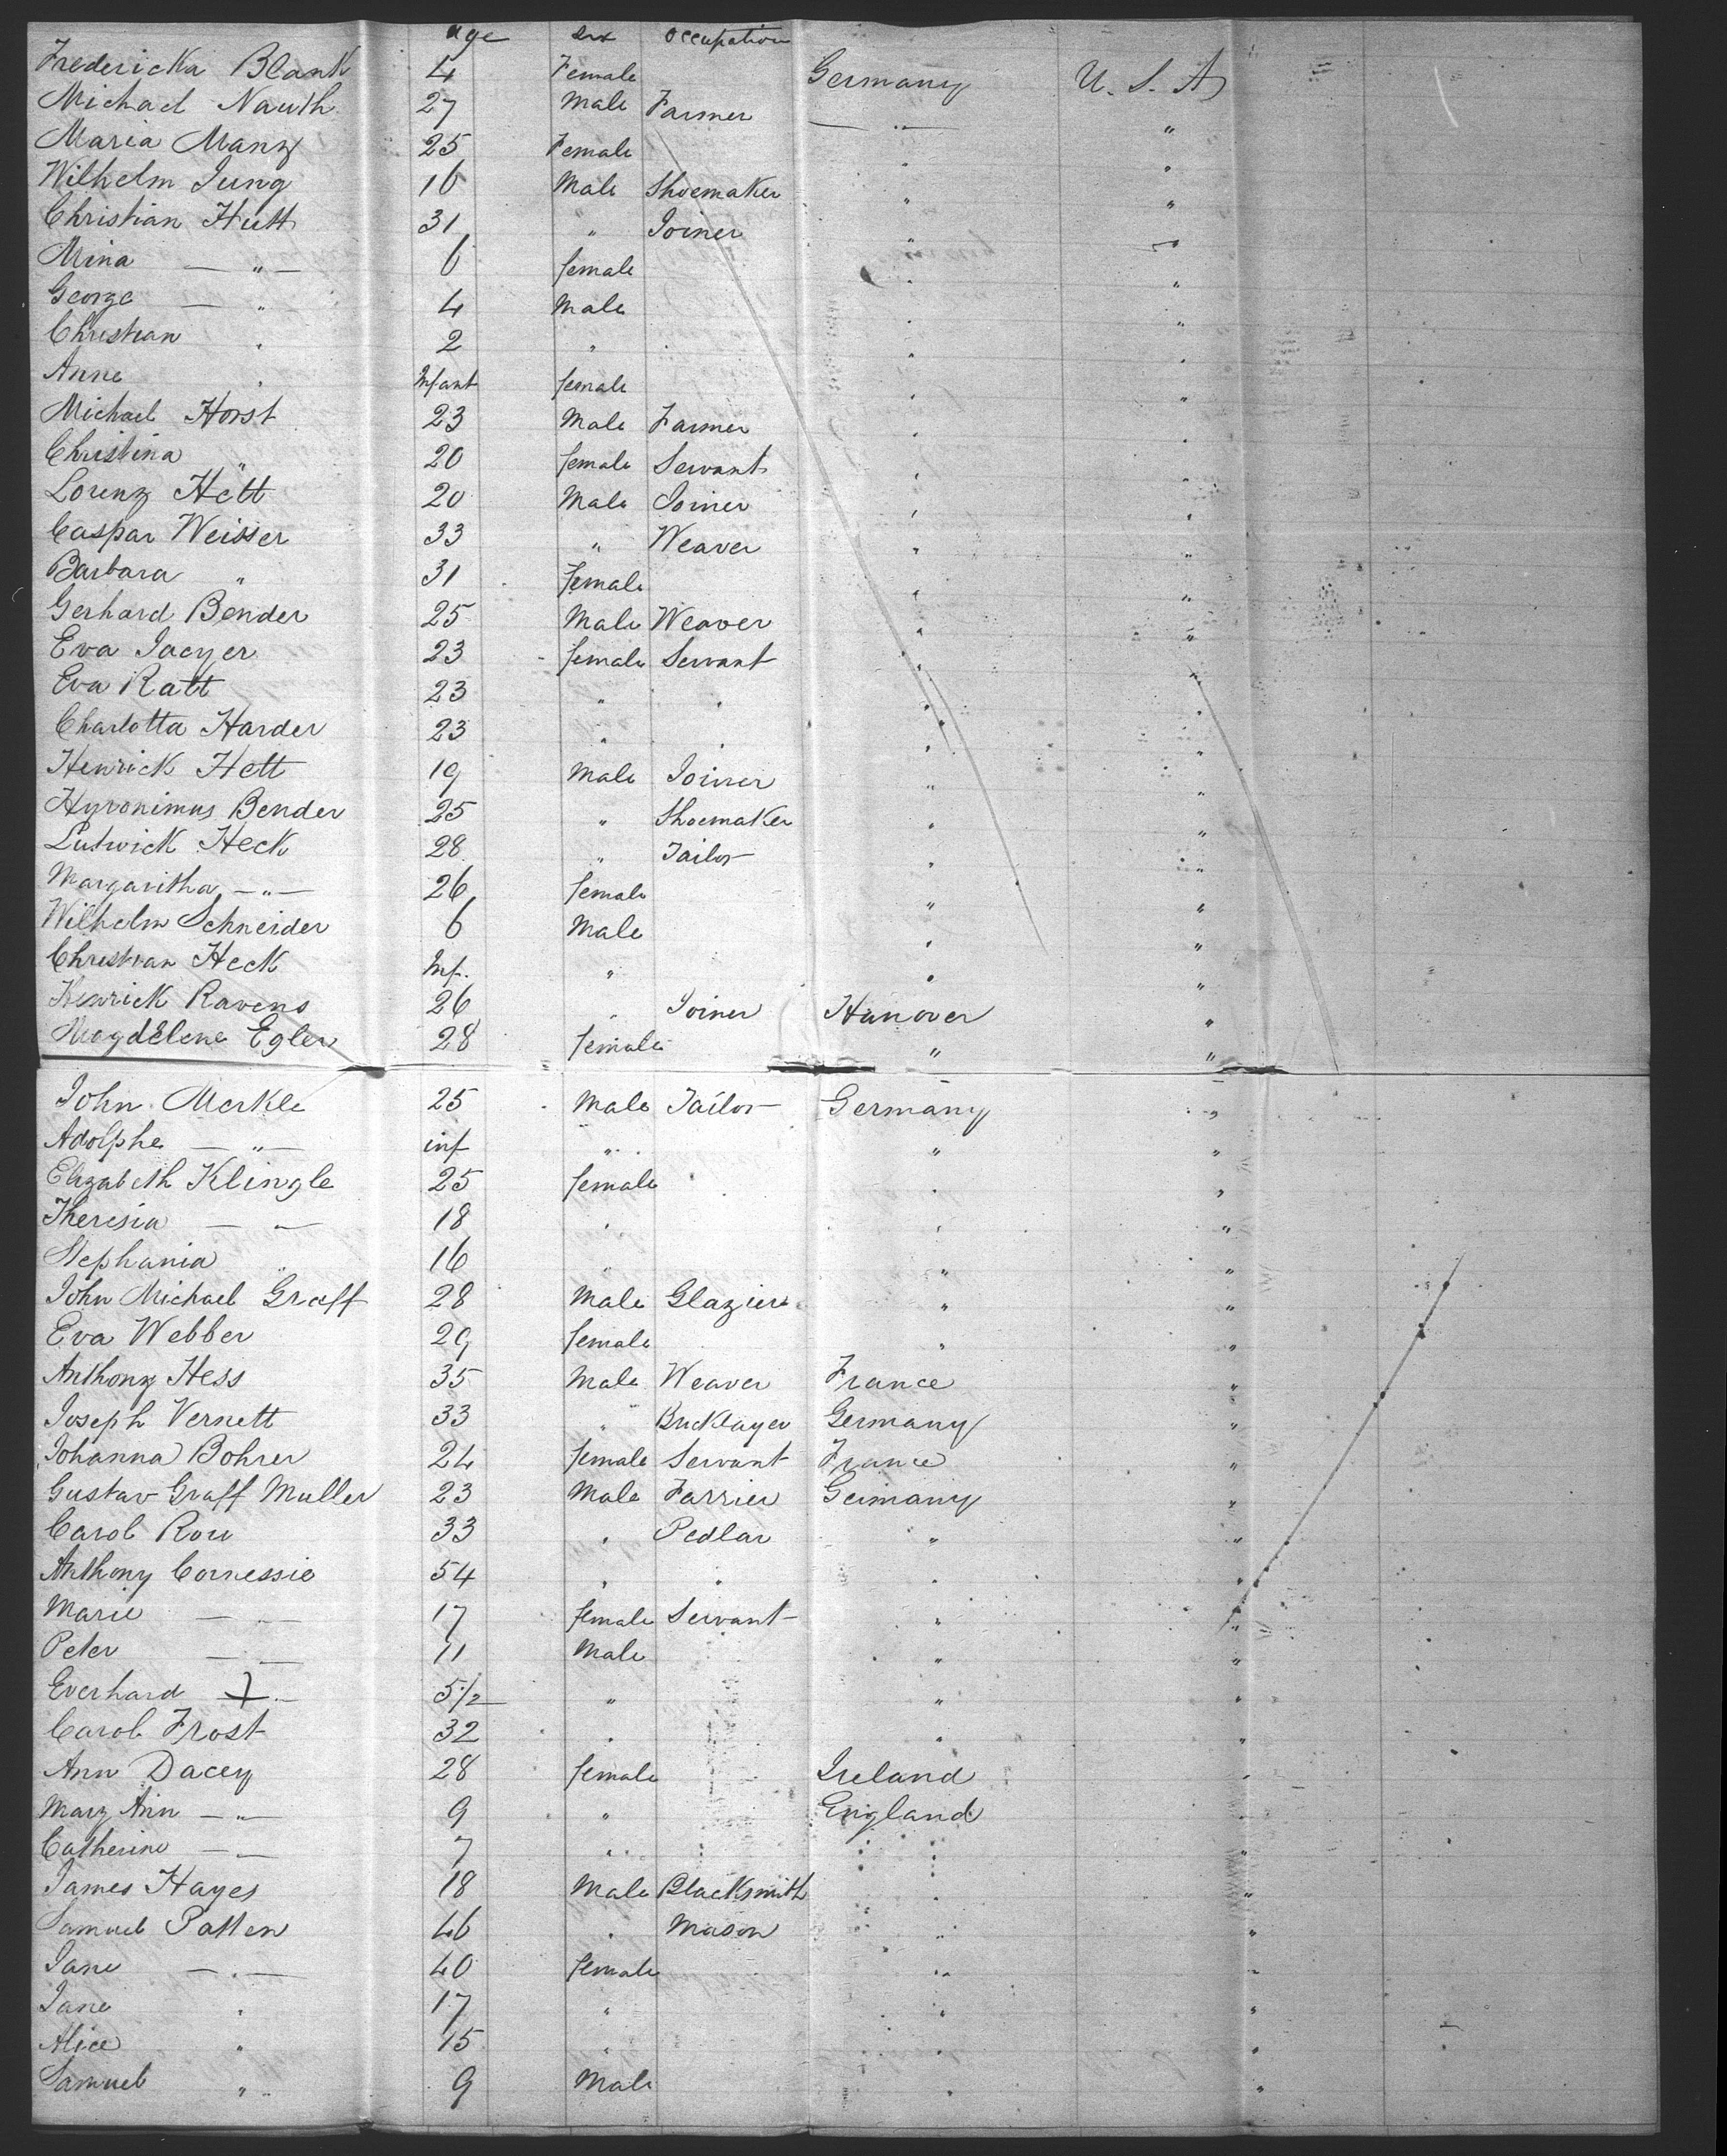 age sex occupation
Fredericka Blank 4 Female Germany U. S. A
Michael Nauth 27 Male Farmer — " — "
Maria Manz 25 Female " "
Wilhelm Jung 16 Male Shoemaker " "
Christian Hutt 31 " Joiner " "
Mina — " — 6 female " "
George — " 4 Male " "
Christian " 2 " " "
Anne " Infant female " "
Michael Horst 23 Male Farmer " "
Christina " 20 female Servant " "
Lorenz Hett 20 Male Joiner " "
Caspar Weisser 33 " Weaver " "
Barbara " 31 Female " "
Gerhard Bender 25 Male Weaver " "
Eva Jaeger 23 female Servant " "
Eva Ratt 23 " " " "
Charlotta Harder 23 " " " "
Henrick Hett 19 Male Joiner " "
Hyronimus Bender 25 " Shoemaker " "
Lutwick Heck 28 " Tailor " "
Margaritha — " — 26 female " "
Wilhelm Schneider 6 Male " "
Christian Heck Inf. " " "
Henrick Ravens 26 " Joiner Hanover "
Magdelene Egler 28 female " "
John Merkle 25 Male Tailor Germany "
Adolphe — " — inf " " "
Elizabeth Klingle 25 female " "
Theresia — — 18 " " "
Stephania " 16 " " "
John Michael Graff 28 Male Glazier " "
Eva Webber 29 female " "
Anthony Hess 35 Male Weaver France "
Joseph Vernett 33 " Bricklayer Germany "
Johanna Bohrer 24 female Servant France "
Gustav Graff Muller 23 Male Farrier Germany "
Carol Rou 33 " Pedlar " "
Anthony Cornessie 54 " " " "
Marie — — 17 female Servant " "
Peter — — 11 Male " "
Everhard — 5 1/2 " " "
Carol Frost 32 " " "
Ann Dacey 28 female Ireland "
Mary Ann — " — 9 " England "
Catherine — — 7 " " "
James Hayes 18 Male Blacksmith " "
Samuel Patten 46 " Mason " "
Jane — " — 40 female " "
Jane " 17 " " "
Alice " 15 " "
Samuel " 9 Male " "